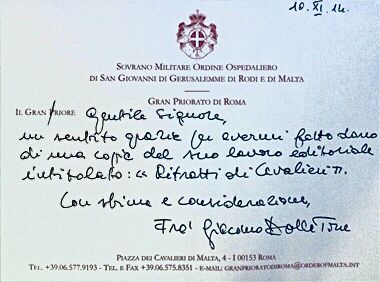 10.XI.14.
SOVRANO MILITARE ORDINE OSPEDALIERO
DI SAN GIOVANNI DI GERUSALEMME DI RODI E DI MALTA
GRAN PRIORATO DI ROMA
IL GRAN PRIORE Gentile Signore,
un sentito grazie per avermi fatto dono
di una copia del suo lavoro editoriale
intitolato: « Ritratti di Cavalieri ».
Con stima e considerazione,
Fra' Giacomo Dalla Torre
PIAZZA DEI CAVALIERI DI MALTA, 4 - I 00153 ROMA
TEL. +39.06.577.9193 - TEL. E FAX +39.06.575.8351 - E-MAIL: GRANPRIORATODIROMA@ORDEROFMALTA.INT